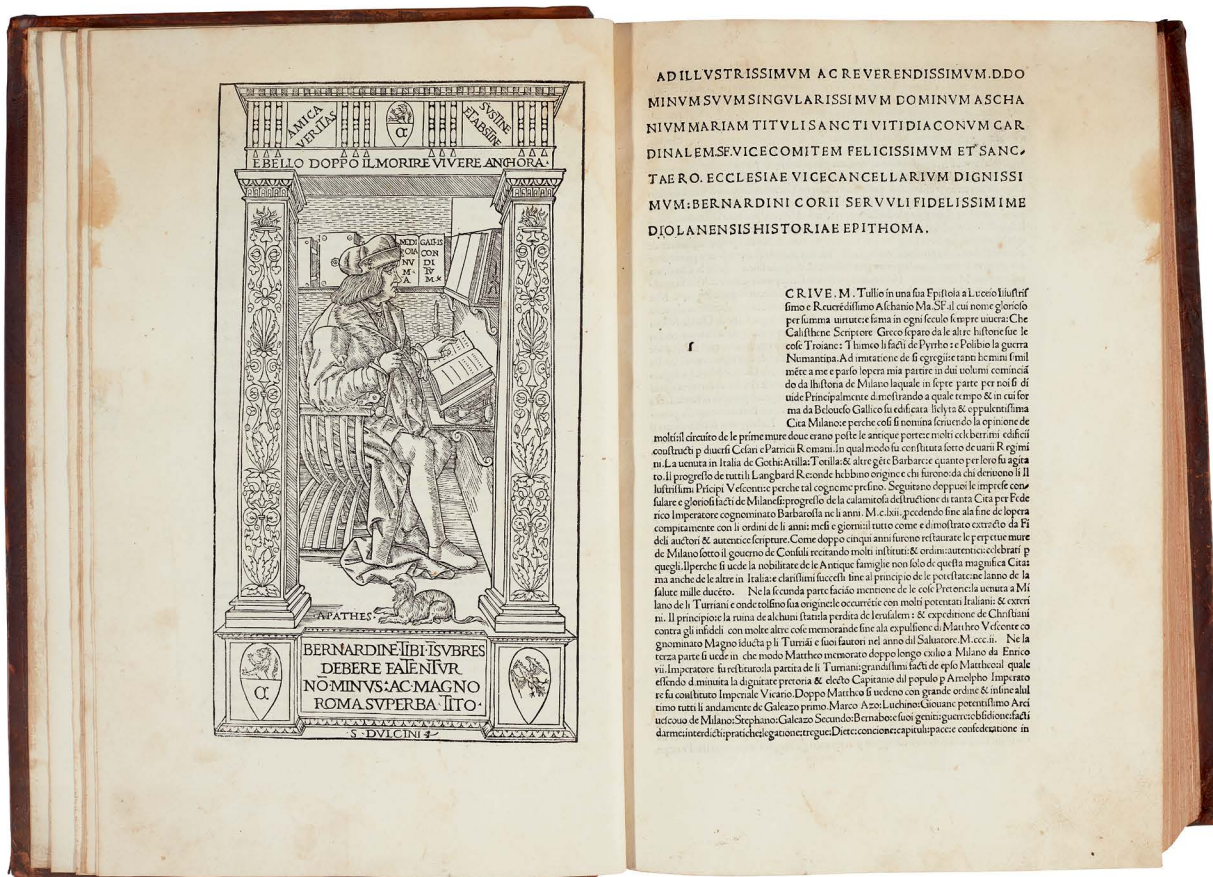 AMICA
VERITAS
α
SVSTINE
ET ABSTINE
E BELLO DOPPO IL MORIRE VIVERE ANCHORA.
MEDI
OLA
NV
M.
A
GALLIS
CON
DI
TV
M.
APATHES.
BERNARDINE·TIBI·ISVBRES
DEBERE FATENTVR
NŌ·MINVS:AC·MAGNO
ROMA.SVPERBA·TITO·
α
·S·DVLCINI
AD ILLVSTRISSIMVM AC REVERENDISSIMVM.D.DO
MINVM SVVM SINGVLARISSIMVM DOMINVM ASCHA
NIVM MARIAM TITVLI SANCTI VITI DIACONVM CAR
DINALEM.SF.VICECOMITEM FELICISSIMVM ET SANC-
TAE RO. ECCLESIAE VICECANCELLARIVM DIGNISSI
MVM: BERNARDINI CORII SERVVLI FIDELISSIMI ME
DIOLANENSIS HISTORIAE EPITHOMA.
ſ
CRIVE.M.Tullio in una ſua Epiſtola a Lucceio Illuſtriſ
ſimo e Reuerēdiſſimo Aſchanio Ma.SF.il cui nome glorioſo
per ſumma uirtute:e fama in ogni ſeculo ſempre uiuera: Che
Caliſthene Scriptore Greco ſeparo da le altre hiſtorie ſue le
coſe Troiane: Thimeo li facti de Pyrrho:e Polibio la guerra
Numantina. Ad imitatione de ſi egregii:e tanti homini ſimil
mēte a me e parſo lopera mia partire in dui uolumi cominciā
do da lhiſtoria de Milano laquale in ſepte parte per noi ſi di
uide Principalmente dimoſtrando a quale tempo & in cui for
ma da Beloueſo Gallico fu edificata līclyta & oppulentiſſima
Cita Milano:e perche coſi ſi nomina ſcriuendo la opinione de
molti:il circuito de le prime mure doue erano poſte le antique porte:e molti celeberrimi edificii
conſtructi p diuerſi Ceſari e Patricii Romani. In qual modo fu conſtituta ſotto de uarii Regimi
ni. La uenuta in Italia de Gothi: Atilla: Totilla: & altre gēte Barbare:e quanto per loro fu agita
to. Il progreſſo de tutti li Langbard Re:onde hebbino origine e chi furono:da chi deriuono li Il
luſtriſſimi Prīcipi Veſconti:e perche tal cogneme preſino. Seguitano doppuoi le impreſe con-
ſulare e glorioſi facti de Milaneſi:progreſſo de la calamitoſa deſtructione di tanta Cita per Fede
rico Imperatore cognominato Barbaroſſa ne li anni. M.c.lxii.,pcedendo fine ala fine de lopera
compitamente con li ordini de li anni: meſi e giorni:il tutto come e dimoſtrato extracto da Fi
deli auctori & autentice ſcripture. Come doppo cinqui anni furono reſtaurate le perpetue mure
de Milano ſotto il gouerno de Conſuli recitando molti inſtituti: & ordini:autentici:celebrati p
quegli. Ilperche ſi uede la nobilitate de le Antique famiglie non ſolo de queſta magnifica Cita:
ma anche de le altre in Italia:e clariſſimi ſucceſſi fine al principio de le poteſtate:ne lanno de la
ſalute mille ducēto. Ne la ſecunda parte faciāo mentione de le coſe Pretorie:la uenuta a Mi
lano de li Turriani e onde tolſino ſua origine:le occurrētie con molti potentati Italiani: & exteri
ni. Il principio:e la ruina de alchuni ſtati:la perdita de Ieruſalem: & expeditione de Chriſtiani
contra gli infideli con molte altre coſe memorande fine ala expulſione di Mattheo Veſconte co
gnominato Magno īducta p li Turriāi e ſuoi fautori nel anno dil Saluatore.M.ccc.ii. Ne la
terza parte ſi uede in che modo Mattheo memorato doppo longo exilio a Milano da Enrico
vii. Imperatore fu reſtituto:la partita de li Turriani:grandiſſimi facti de epſo Mattheo:il quale
eſſendo diminuita la dignitate pretoria & electo Capitanio dil populo p Arnolpho Imperato
re fu conſtituto Imperiale Vicario. Doppo Mattheo ſi uedeno con grande ordine & inſine alul
timo tutti li andamente de Galeazo primo. Marco Azo: Luchino: Giouane potentiſſimo Arci
ueſcouo de Milano: Stephano: Galeazo Secundo: Bernabo:e ſuoi geniti:guerre:obſidione:facti
darme:interdicti:pratiche:legatione:tregue: Diete:concione:capituli:pace:e confederatione in